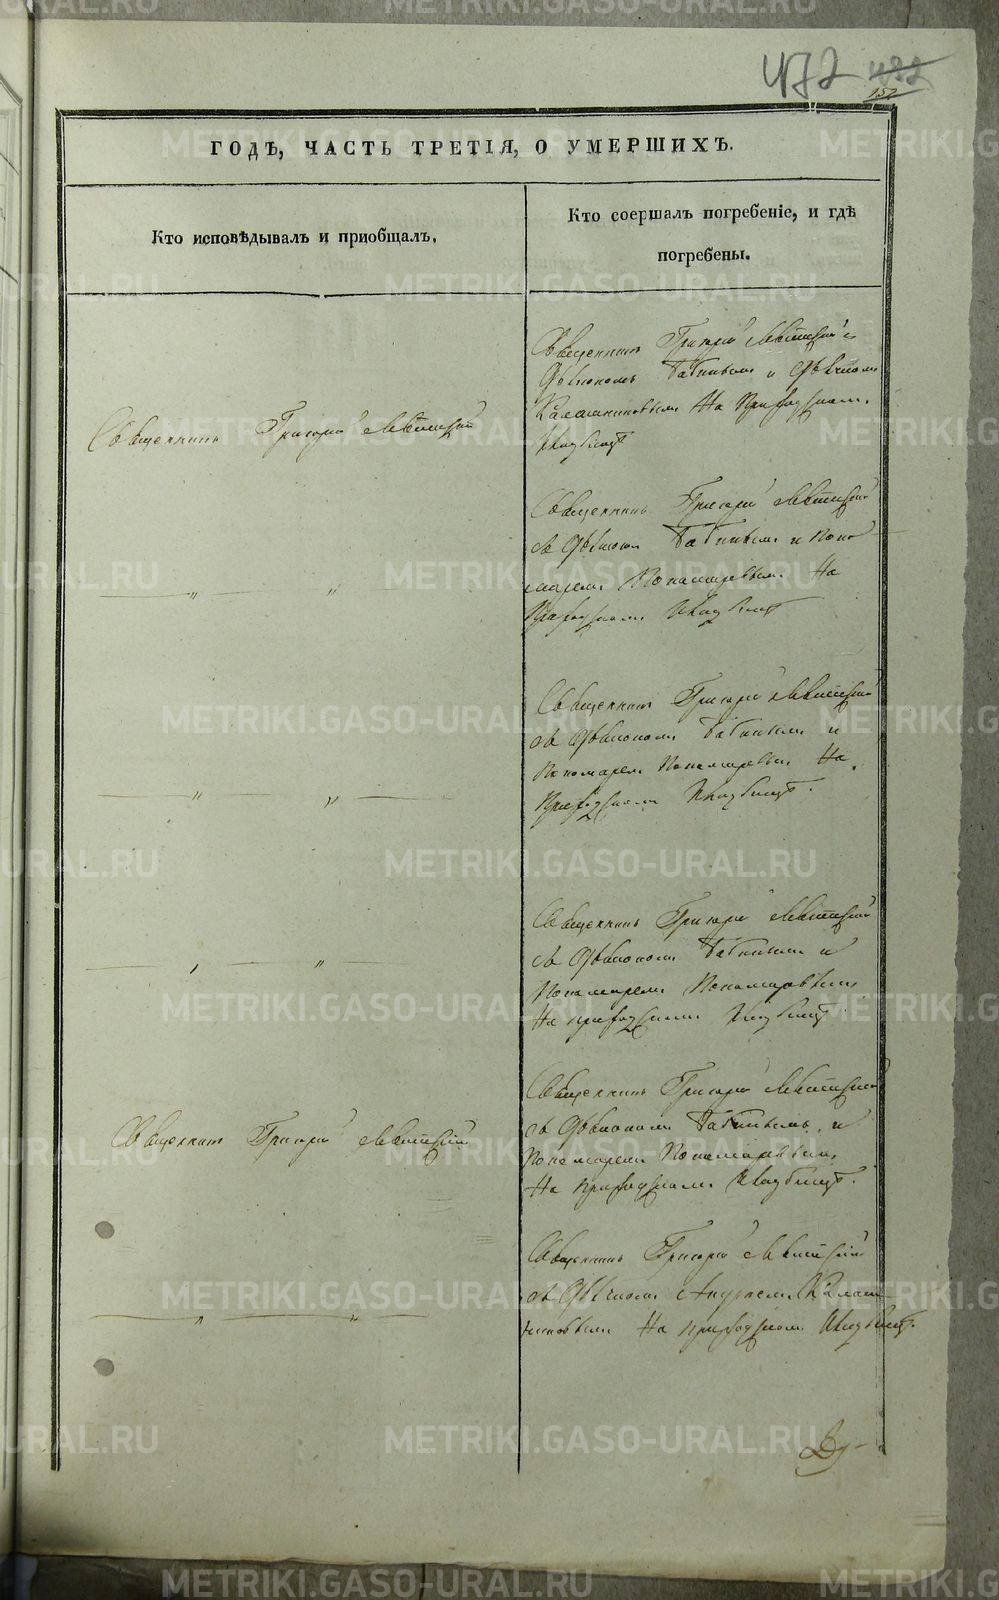 472 482
152
ГОДѢ, ЧАСТЬ ТРЕТІЯ, О УМЕРШИХЪ.
Кто исповѣдывалъ и пріобщалъ.
Кто соершалъ погребеніе, и гдѣ
погребены.
Священникъ Григорій Левитскій
Священникъ Григорій Левитскій с
Дьякономъ Бабинымъ и Дьячкомъ
Калашниковымъ На Приходскомъ
Кладбищѣ
Священникъ Григорій Левитскій
съ Дьякономъ Бабинымъ и Поно-
маремъ Пономаревымъ На
Приходскомъ Кладбищѣ
" "
Священникъ Григорій Левитскій
съ Дьякономъ Бабинымъ и
Пономаремъ Пономаревымъ На
Приходскомъ Кладбищѣ.
" "
Священникъ Григорій Левитскій
съ Дьякономъ Бабинымъ и
Пономаремъ Пономаревымъ
На приходскомъ Кладбищѣ.
" "
Священникъ Григорій Левитскій
Священникъ Григорій Левитскій
съ Дьякономъ Бабинымъ, и
Пономаремъ Пономаревымъ,
На приходскомъ Кладбищѣ.
Священникъ Григорій Левитскій
съ Дьячкомъ Андреемъ Калаш-
никовымъ На приходскомъ Кладбищѣ.
" "
METRIKI.GASO-URAL.RU